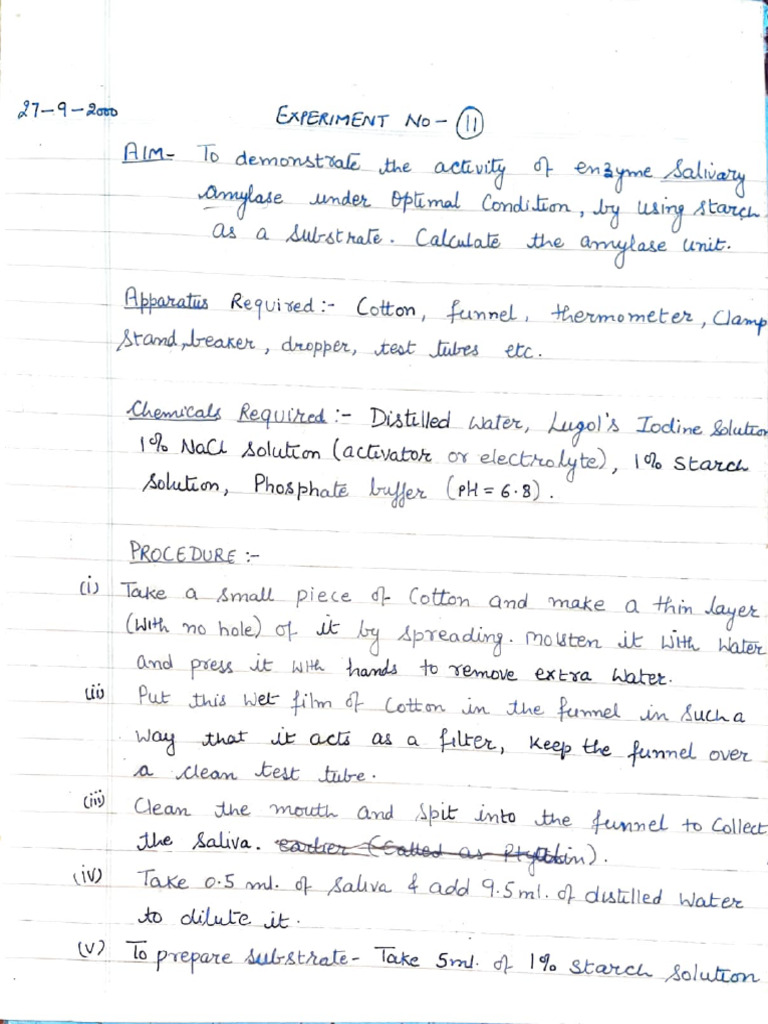 27-9-2000
EXPERIMENT NO - 11
AIM- To demonstrate the activity of enzyme Salivary
amylase under Optimal Condition, by using starch
as a substrate. Calculate the amylase unit.
Apparatus Required:- Cotton, funnel, thermometer, Clamp
Stand, beaker, dropper, test tubes etc.
Chemicals Required:- Distilled Water, Lugol's Iodine Solution
1% NaCl Solution (activator or electrolyte), 1% starch
Solution, Phosphate buffer (PH = 6.8).
PROCEDURE :-
(i) Take a small piece of Cotton and make a thin layer
(with no hole) of it by spreading. Moisten it with Water
and press it with hands to remove extra Water.
(ii) Put this wet film of Cotton in the funnel in such a
way that it acts as a filter, keep the funnel over
a clean test tube.
(iii) Clean the mouth and spit into the funnel to Collect
the saliva. earlier (Called as Ptyalin).
(iv) Take 0.5 ml. of saliva & add 9.5 ml. of distilled Water
to dilute it.
(v) To prepare substrate- Take 5ml. of 1% starch solution